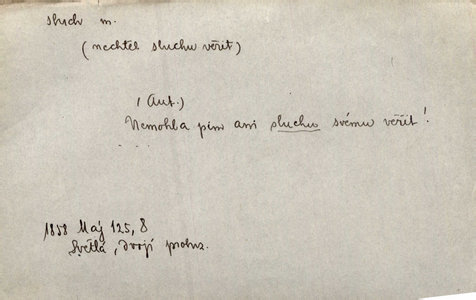 sluch m.
(nechtěl sluchu věřit)
(Aut.)
Nemohla ani sluchu svému věřit!
. . .
1858 Máj 125, 8
Světlá, Dvojí probuz.